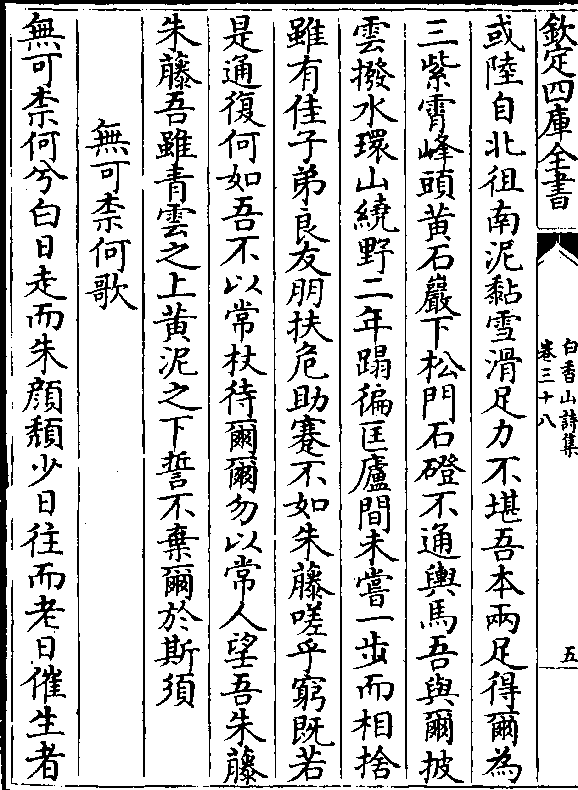 欽定四庫全書
白香山詩集
卷三十八
五
或陸自北徂南泥黏雪滑足力不堪吾本兩足得爾為
三紫霄峰頭黄石巖下松門石磴不通輿馬吾與爾披
雲撥水環山繞野二年蹋徧匡廬間未嘗一步而相捨
雖有佳子弟良友朋扶危助蹇不如朱藤嗟乎窮既若
是通復何如吾不以常杖待爾爾勿以常人望吾朱藤
朱藤吾雖青雲之上黄泥之下誓不棄爾於斯須
無可柰何歌
無可柰何兮白日走而朱顔頽少日往而老日催生者